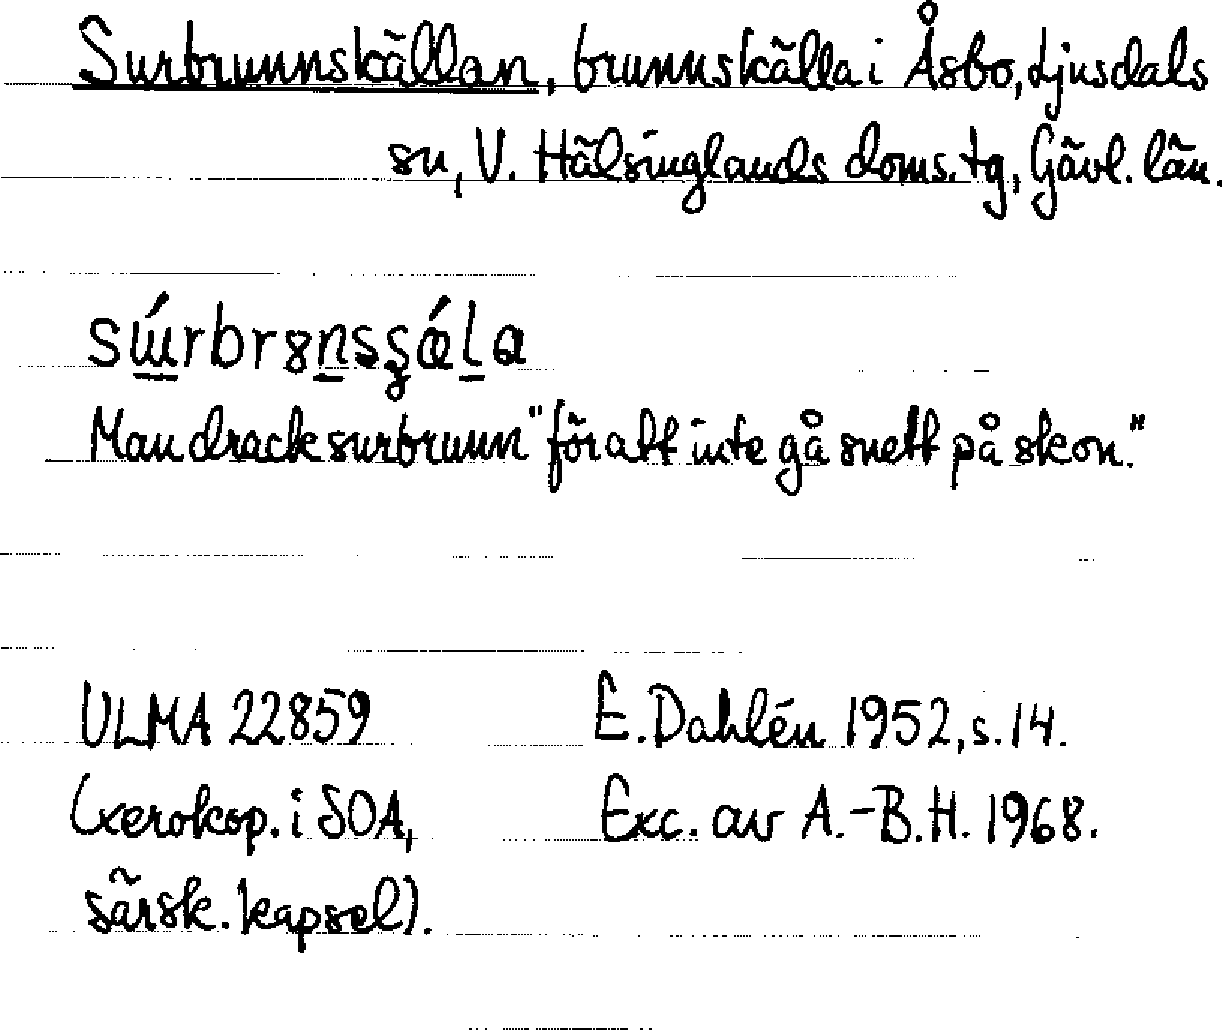 Surbrunnskällan, brunnskälla i Åsbo, Ljusdals
sn, V. Hälsinglands doms. tg, Gävl. län.
Man drack surbrunn "för att inte gå snett på skon."
ULMA 22859 E. Dahlén 1952, s. 14.
(xerokop. i SOA, Exc. av A.-B.H. 1968.
särsk. kapsel).